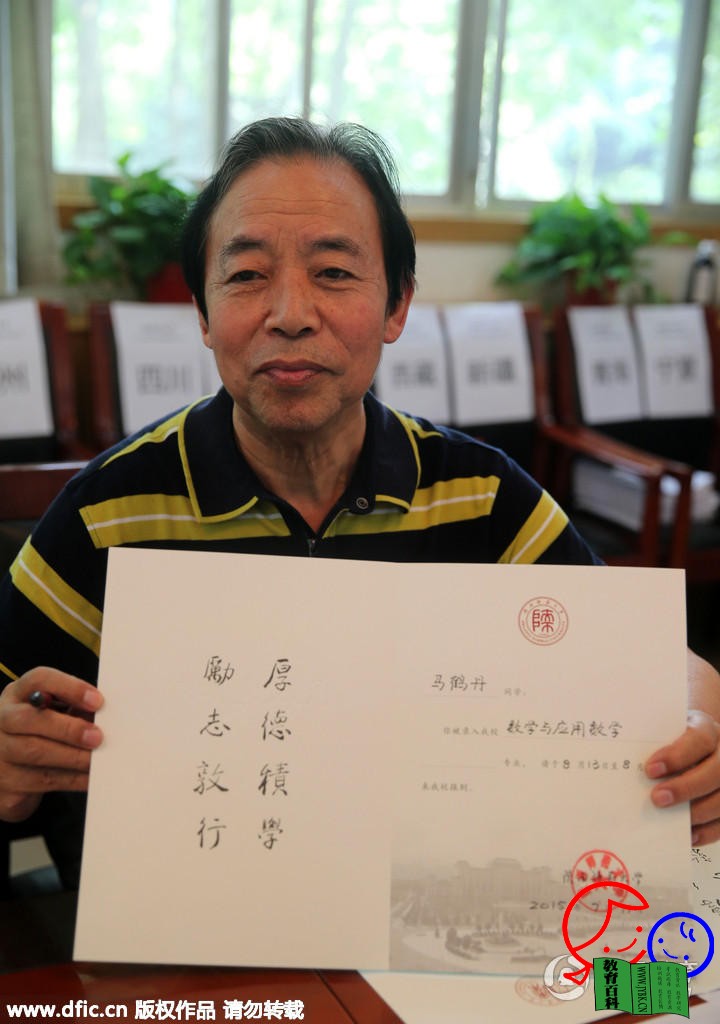 州
四川
西藏
新疆
青海
宁夏
厚德積學
勵志敦行
陕
马鹤丹 同学:
你被录入我校 数学与应用数学
专业, 请于 8 月 13 日至 8 月
来我校报到。
陕西师范大学
2015 年 7
www.dfic.cn 版权作品 请勿转载
教育百科
WWW.JYBK.CN
育